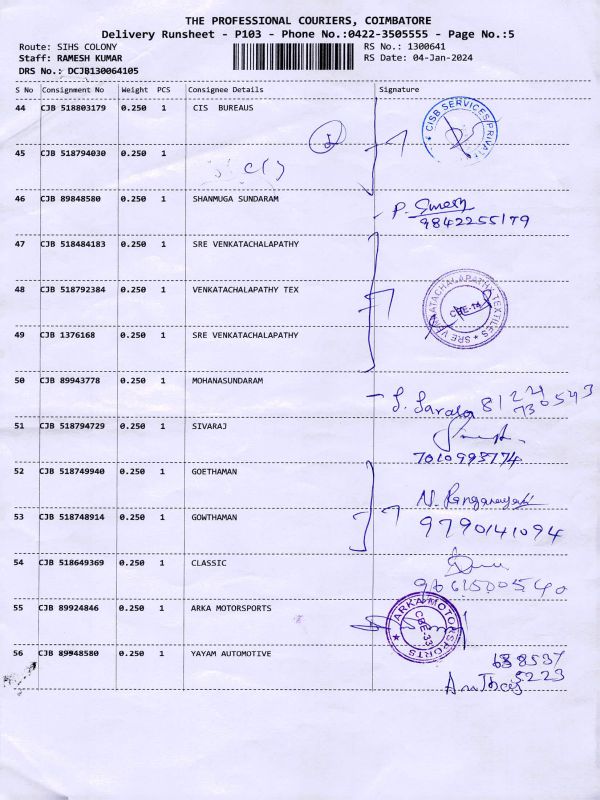 THE PROFESSIONAL COURIERS, COIMBATORE
Delivery Runsheet - P103 - Phone No.:0422-3505555 - Page No.:5
Route: SIHS COLONY RS No.: 1300641
Staff: RAMESH KUMAR RS Date: 04-Jan-2024
DRS No.: DCJB130064105
S No Consignment No Weight PCS Consignee Details Signature
44 CJB 518803179 0.250 1 CIS BUREAUS
CISB SERVICES PRIVA
45 CJB 518794030 0.250 1
46 CJB 89848580 0.250 1 SHANMUGA SUNDARAM
9842255179
47 CJB 518484183 0.250 1 SRE VENKATACHALAPATHY
48 CJB 518792384 0.250 1 VENKATACHALAPATHY TEX
SRE VENKATACHALAPATHY TEXTILES
49 CJB 1376168 0.250 1 SRE VENKATACHALAPATHY
50 CJB 89943778 0.250 1 MOHANASUNDARAM
51 CJB 518794729 0.250 1 SIVARAJ
52 CJB 518749940 0.250 1 GOETHAMAN
53 CJB 518748914 0.250 1 GOWTHAMAN
9790141094
54 CJB 518649369 0.250 1 CLASSIC
55 CJB 89924846 0.250 1 ARKA MOTORSPORTS
ARKA MOTORSPORTS
CBE-33
56 CJB 89948580 0.250 1 YAYAM AUTOMOTIVE